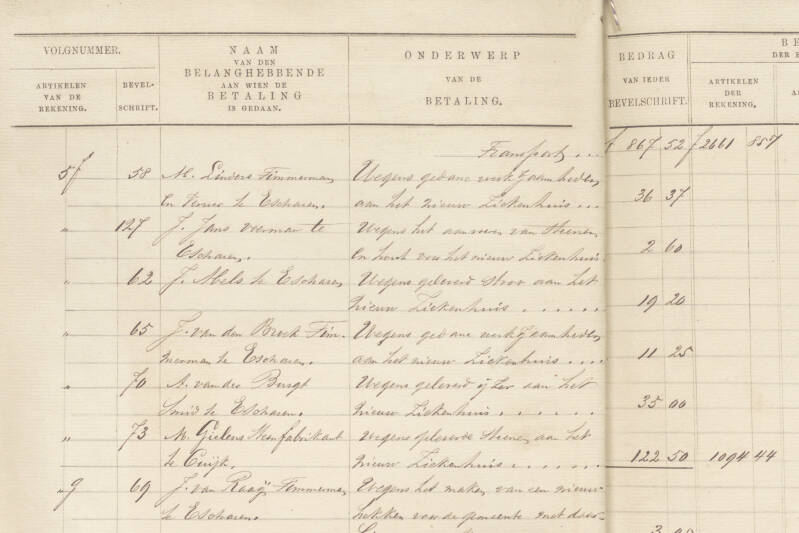 VOLGNUMMER.
ARTIKELEN VAN DE REKENING.
BEVEL-SCHRIFT.
NAAM
VAN DEN
BELANGHEBBENDE
AAN WIEN DE
BETALING
IS GEDAAN.
ONDERWERP
VAN DE
BETALING.
BEDRAG
VAN IEDER
BEVELSCHRIFT.
BE
DER B
ARTIKELEN
DER
REKENING.
A
Transport ... f 867 52 f 2661 857
5f 58 M. Linders Timmerman Wegens gedane werkzaamheden
en Verver te Escharen. aan het nieuw Ziekenhuis ... 36 37
" 127 J. Jans voerman te Wegens het aanvoeren van Steenen
Escharen. en hout voor het nieuw Ziekenhuis 2 60
" 62 J. Abels te Escharen Wegens geleverd stroo aan het
nieuw Ziekenhuis . . . . . 19 20
" 65 J. van den Broek Tim- Wegens gedane werkzaamheden
merman te Escharen. aan het nieuw Ziekenhuis .... 11 25
" 70 A. van der Burgt Wegens geleverd ijzer aan het
Smid te Escharen. nieuw Ziekenhuis . . . . . . 35 00
" 73 M. Gielens Steenfabrikant Wegens geleverde Steenen aan het
te Cuijk. nieuw Ziekenhuis . . . . . 122 50 1094 44
"g 69 J. van Raaij Timmerman Wegens het maken van een nieuw
te Escharen. hekken voor de gemeente met daar-
3 00